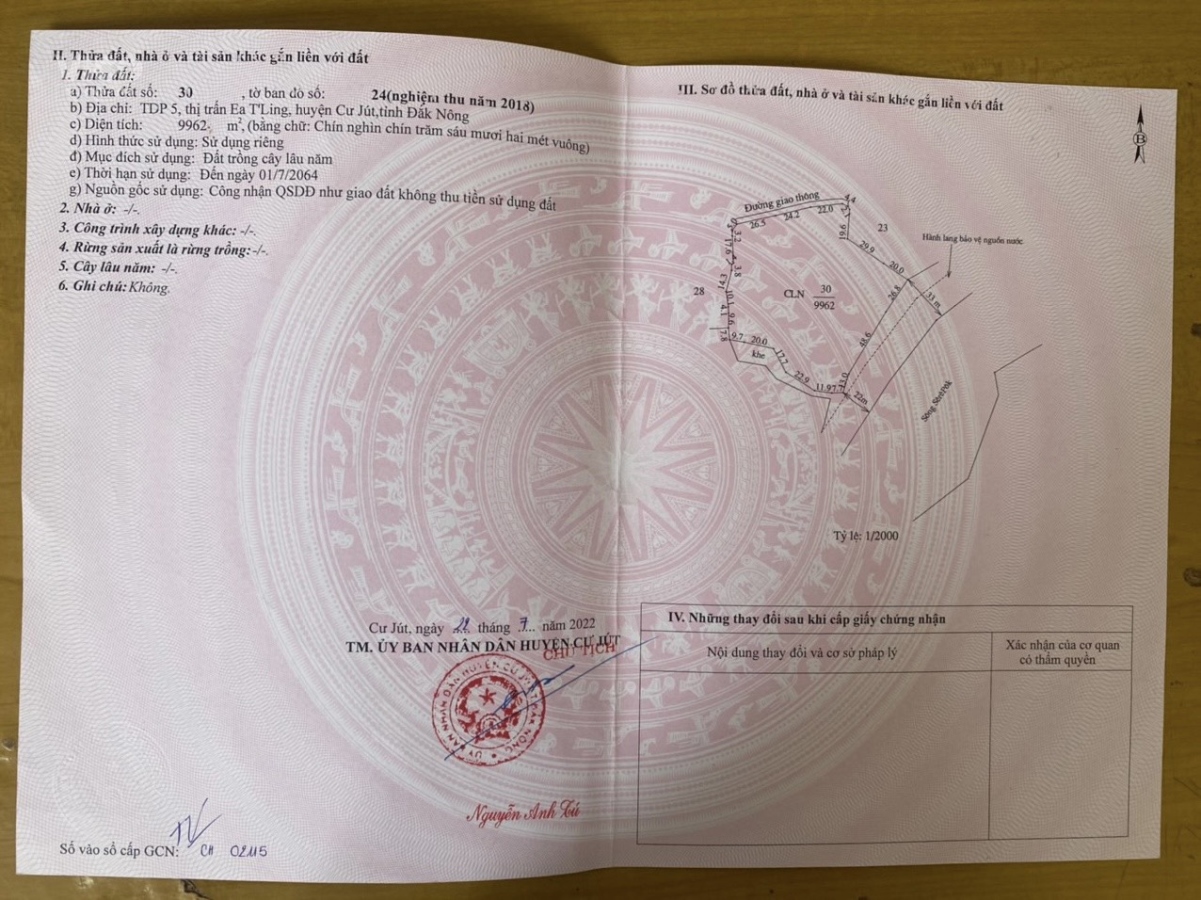 II. Thửa đất, nhà ở và tài sản khác gắn liền với đất
1. Thửa đất:
a) Thửa đất số: 30 , tờ bản đồ số: 24(nghiệm thu năm 2018)
b) Địa chỉ: TDP 5, thị trấn Ea T'Ling, huyện Cư Jút,tỉnh Đăk Nông
c) Diện tích: 9962. m², (bằng chữ: Chín nghìn chín trăm sáu mươi hai mét vuông)
d) Hình thức sử dụng: Sử dụng riêng
đ) Mục đích sử dụng: Đất trồng cây lâu năm
e) Thời hạn sử dụng: Đến ngày 01/7/2064
g) Nguồn gốc sử dụng: Công nhận QSDĐ như giao đất không thu tiền sử dụng đất
2. Nhà ở: -/-.
3. Công trình xây dựng khác: -/-.
4. Rừng sản xuất là rừng trồng: -/-.
5. Cây lâu năm: -/-.
6. Ghi chú: Không.
Cư Jút, ngày tháng 7 năm 2022
TM. ỦY BAN NHÂN DÂN HUYỆN CƯ JÚT
CHỦ TỊCH
ỦY BAN NHÂN DÂN HUYỆN CƯ JÚT ĐĂK NÔNG
Nguyễn Anh Tú
Số vào sổ cấp GCN: CH 02115
III. Sơ đồ thửa đất, nhà ở và tài sản khác gắn liền với đất
B
Đường giao thông
4.4
26.5 24.2 22.0
3.2
17.6
3.8
14.3
10.1
4.1
9.6
7.8
19.6
23
29.9
20.0
Hành lang bảo vệ nguồn nước
28
CLN 30
9962
26.8
33 m
48.6
9.7 20.0
khe
17.7
22.9
11.9
22m
Tỷ lệ: 1/2000
IV. Những thay đổi sau khi cấp giấy chứng nhận
Nội dung thay đổi và cơ sở pháp lý
Xác nhận của cơ quan
có thẩm quyền